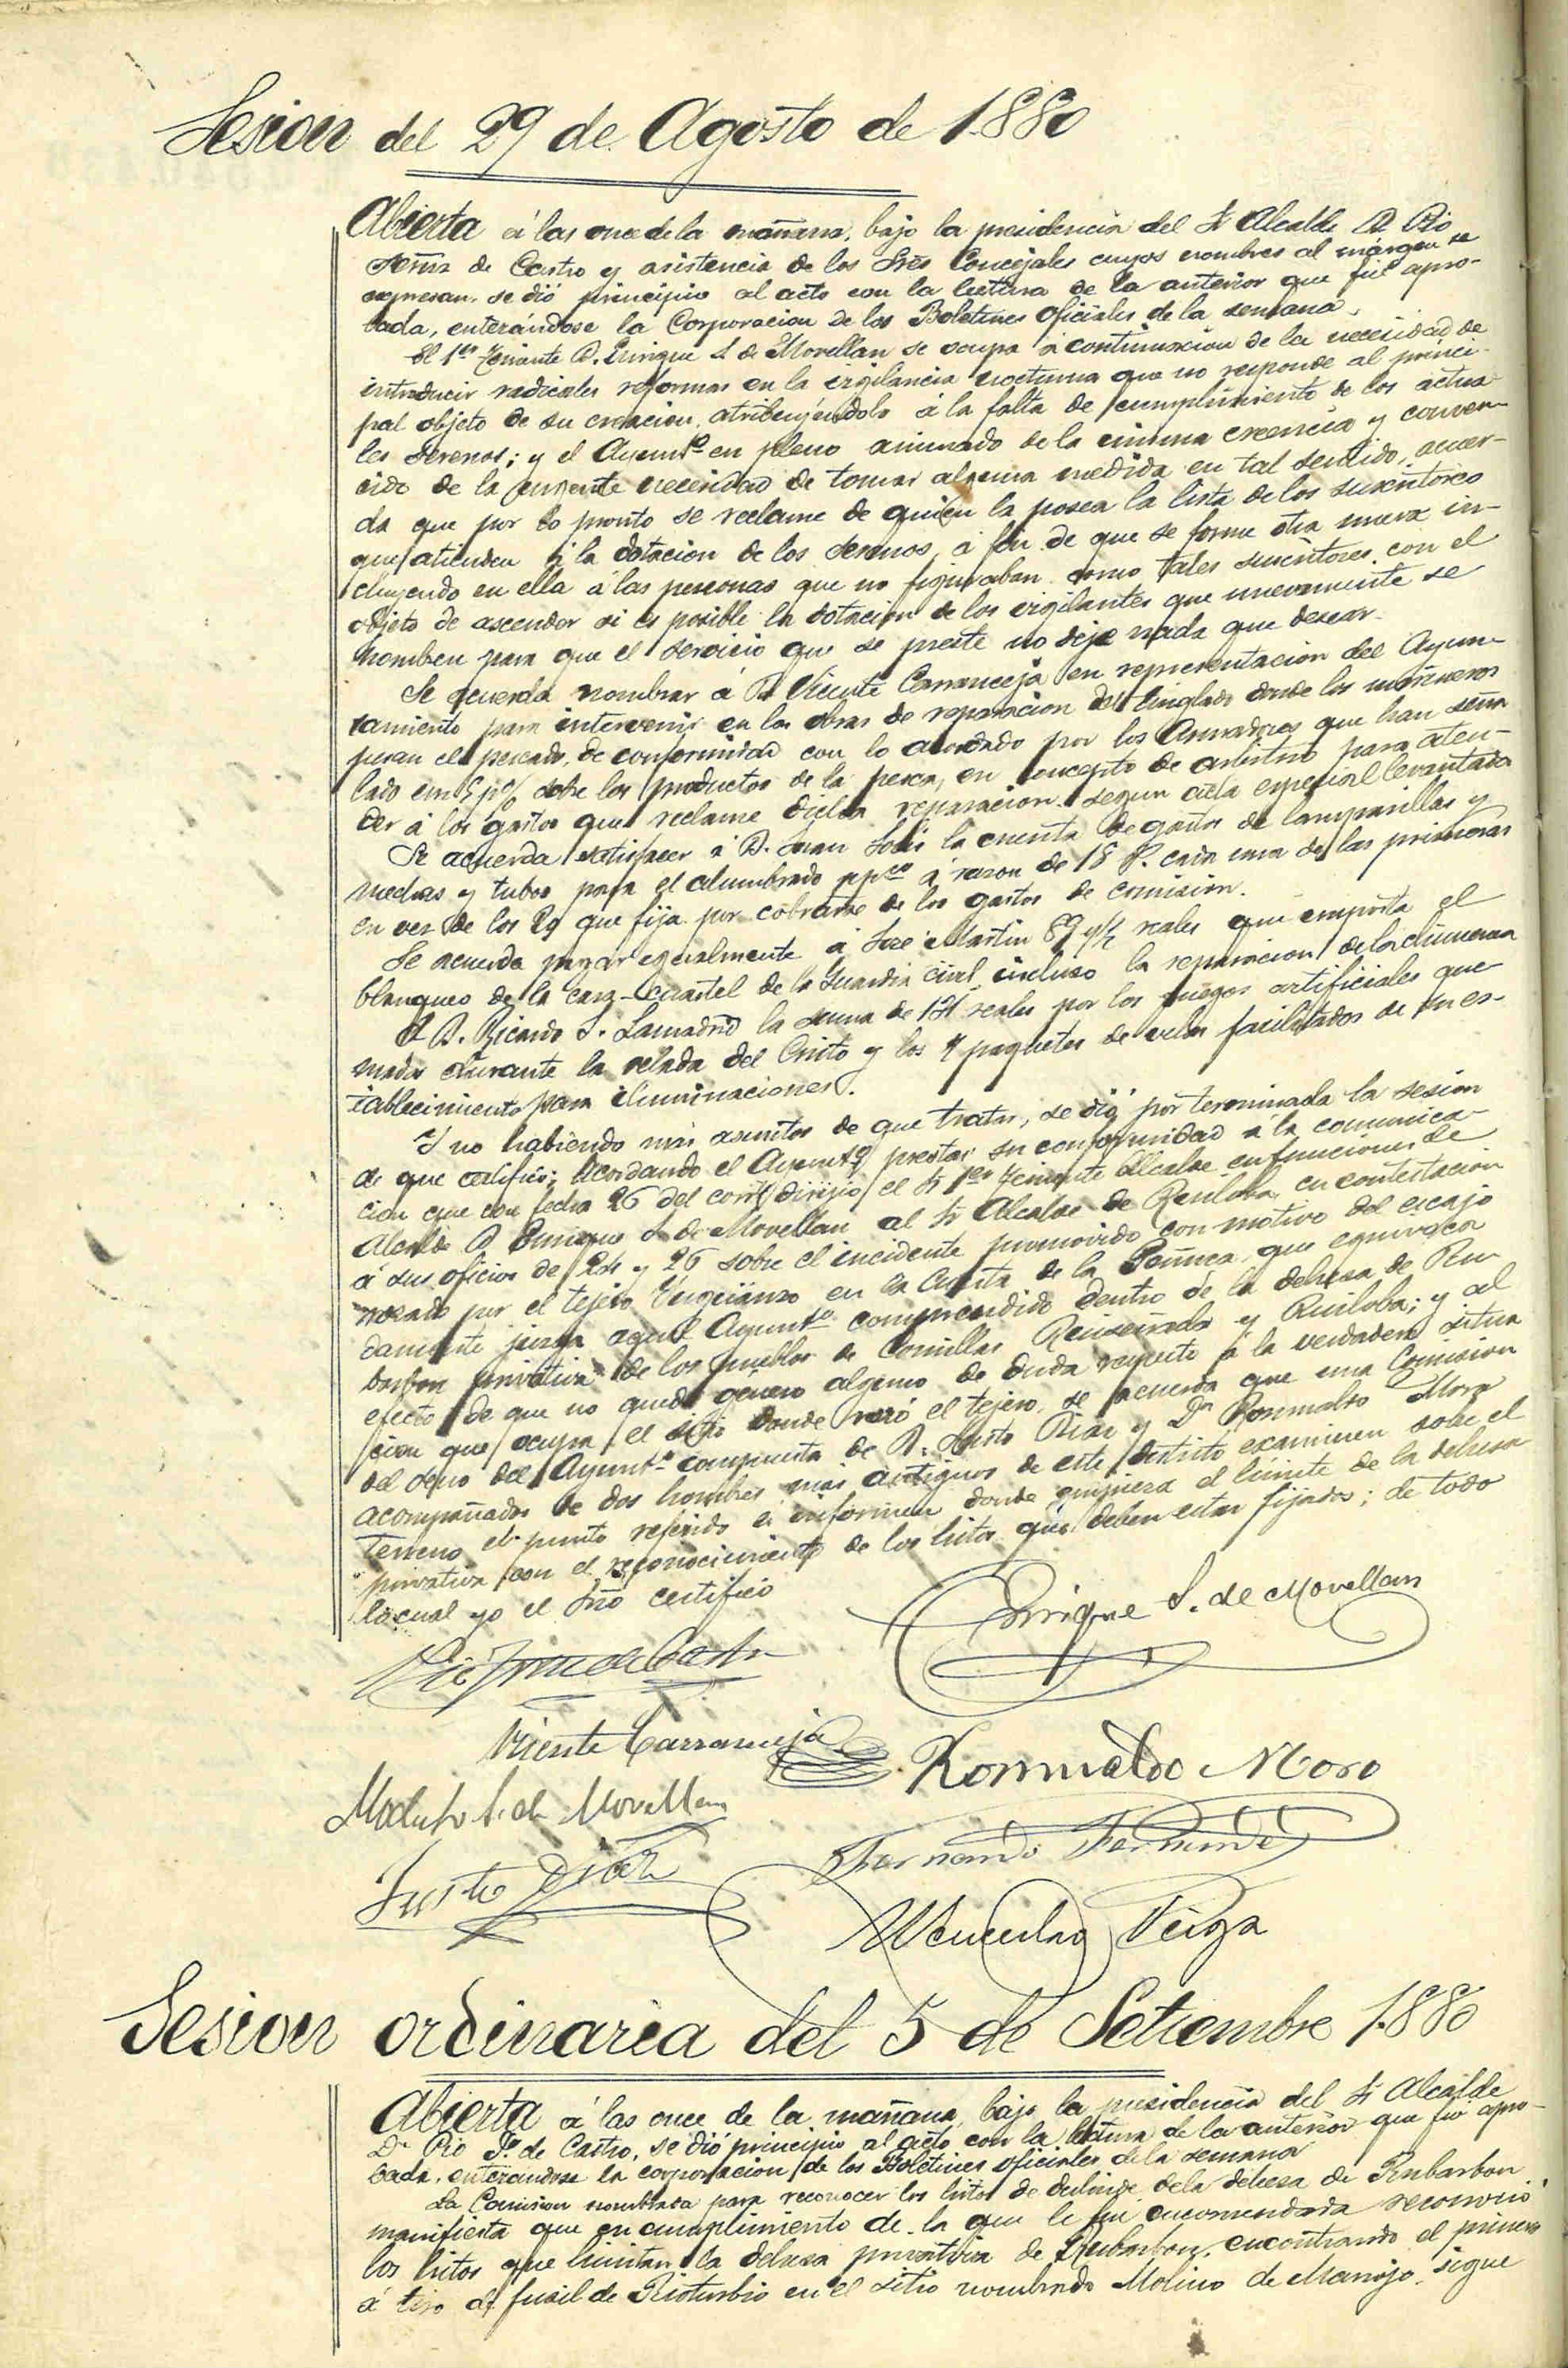 Sesion del 29 de Agosto de 1880
Abierta á las once de la mañana, bajo la presidencia del Sr Alcalde D. Pio
de Castro y asistencia de los Sres Concejales cuyos nombres al márgen se
expresan, se dió principio al acto con la lectura de la anterior que fué apro-
bada, enterándose la Corporacion de los Boletines oficiales de la semana.
El 1er Teniente D. Enrique S. de Movellan se ocupa á continuacion de la necesidad de
introducir radicales reformas en la vigilancia nocturna que no responde al princi-
pal objeto de su creacion, atribuyéndolo á la falta de cumplimiento de los actua-
les serenos; y el Ayunto en pleno animado de la misma creencia y conven-
cido de la urgente necesidad de tomar alguna medida en tal sentido, acuer-
da que por lo pronto se reclame de quien la posea la lista de los suscritores
que atienden á la dotacion de los serenos, á fin de que se forme otra nueva in-
cluyendo en ella á las personas que no figuraban como tales suscritores, con el
objeto de ascender si es posible la dotacion de los vigilantes que nuevamente se
nombren para que el servicio que se preste no deje nada que desear.
Se acuerda nombrar á D. Vicente Carranceja en representacion del Ayun-
tamiento para intervenir en las obras de reparacion del tinglado donde los marineros
pesan el pescado, de conformidad con lo acordado por los Armadores que han seña-
lado un 5 p% sobre los productos de la pesca, en concepto de arbitrio para aten-
der á los gastos que reclame dicha reparacion segun acta especial levantada
Se acuerda satisfacer á D. Juan Solis la cuenta de gastos de lamparillas y
mechas y tubos para el alumbrado ppco á razon de 18 r. cada una de las primeras
en vez de los 29 que fija por cobrarse de los gastos de comision.
Se acuerda pagar igualmente á José Martin 89 y ½ reales que importa el
blanqueo de la casa-cuartel de la Guardia civil incluso la reparacion de la chimenea
A D. Ricardo S. Lamadrid la suma de reales por los fuegos artificiales que-
mados durante la velada del Cristo y los 4 paquetes de velas facilitados de su es-
tablecimiento para iluminaciones.
Y no habiendo más asuntos de que tratar, se dió por terminada la sesion
de que certifico; Acordando el Ayunto prestar su conformidad á la comunica-
cion que con fecha 26 del corrte dirijió el Sr 1er Teniente Alcalde en funciones de
Alcalde D. Enrique S. de Movellan al Sr Alcalde de Ruiloba, en contestacion
á sus oficios de 24 y 26 sobre el incidente promovido con motivo del escajo
rozado por el tejero en la Cuesta de la que equivoca-
damente juzga aquel Ayunto comprendido dentro de la dehesa de Ru-
barbon privativa de los pueblos de Comillas Ruiseñada y Ruiloba; y al
efecto de que no quede género alguno de duda respecto á la verdadera situa-
cion que ocupa el sitio donde rozó el tejero, se acuerda que una Comision
del seno del Ayunto compuesta de D. Justo Diaz y Dn Romualdo Moro
acompañados de dos hombres más antiguos de este distrito examinen sobre el
terreno el punto referido é informen donde empieza el límite de la dehesa
privativa con el reconocimiento de los hitos que deben estar fijados; de todo
lo cual yo el Srio certifico
Enrique S. de Movellan
Vicente Carranceja
Romualdo Moro
Modesto S. de Movellan
Fernando Fernandez
Justo Diaz
Wenceslao Veiga
Sesion ordinaria del 5 de Setiembre 1.880
Abierta á las once de la mañana, bajo la presidencia del Sr Alcalde
Dn Pio de Castro, se dió principio al acto con la lectura de la anterior que fué apro-
bada, enterándose la corporacion de los Boletines oficiales de la semana
La Comision nombrada para reconocer los hitos de deslinde de la dehesa de Rubarbon
manifiesta que en cumplimiento de la que le fué encomendada reconoció
los hitos que limitan la dehesa privativa de Rubarbon, encontrando el primero
á tiro de fusil de Rioturbio en el sitio nombrado Molino de Manojo, sigue